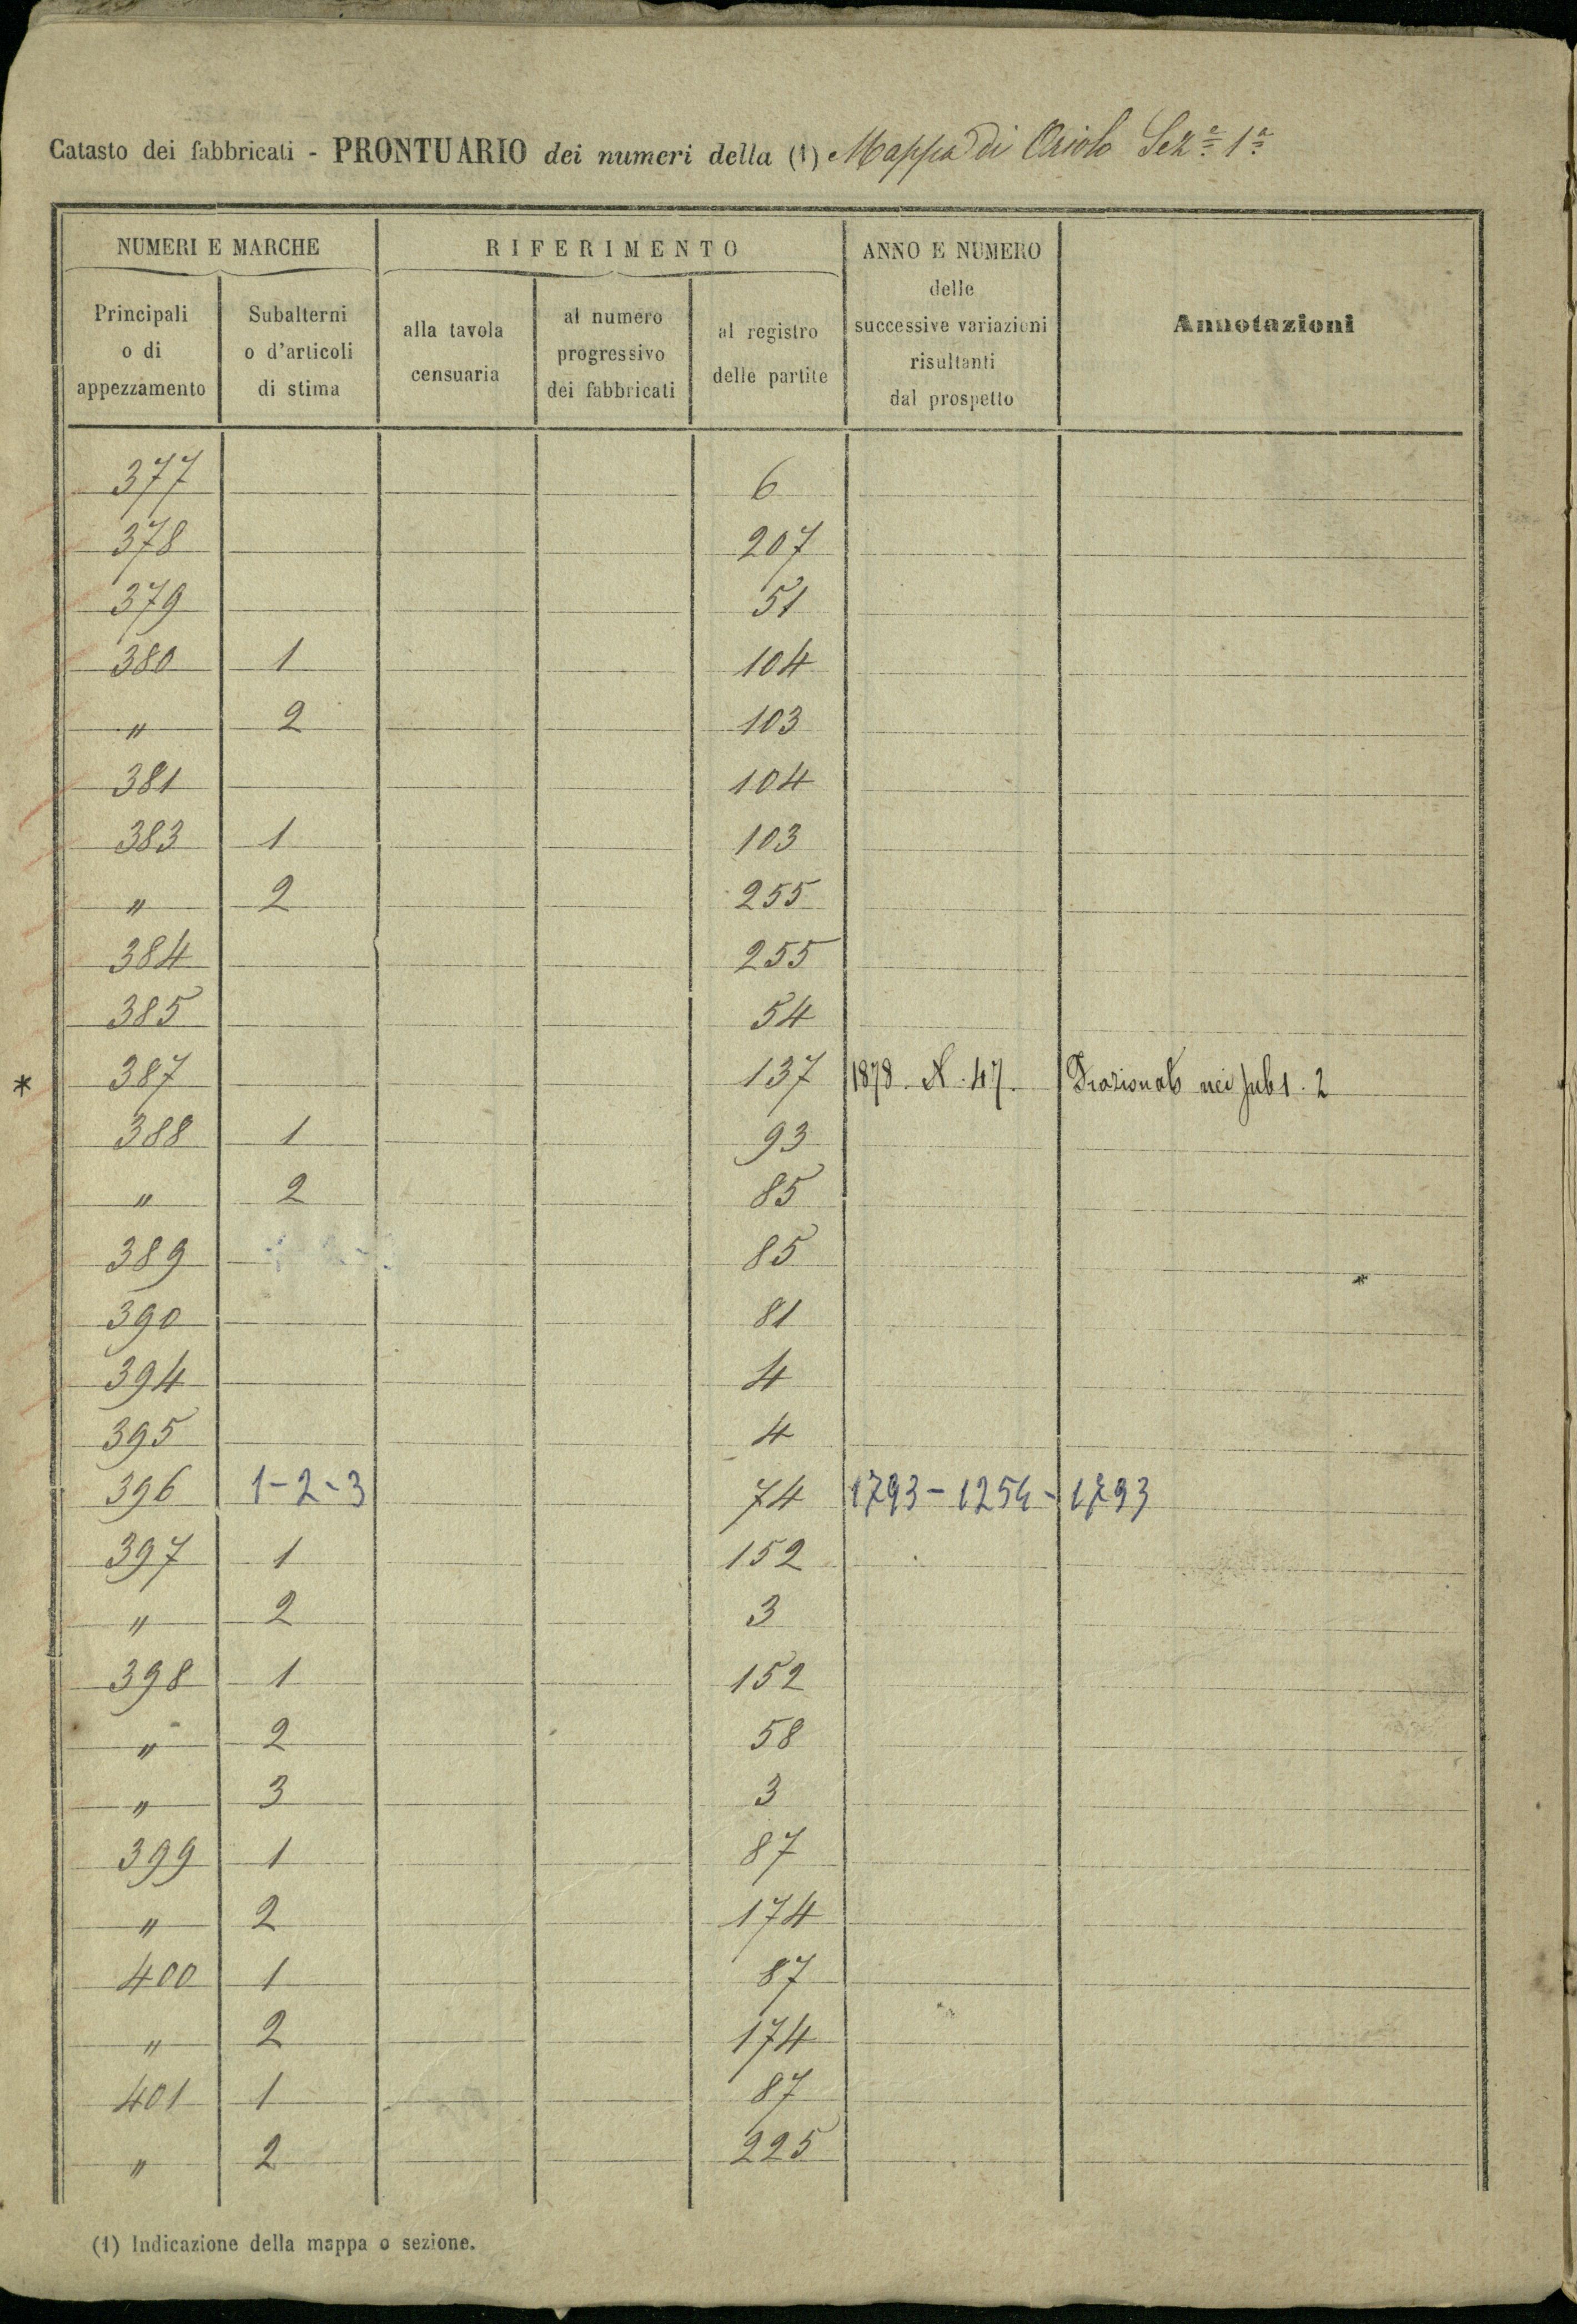 Catasto dei fabbricati - PRONTUARIO dei numeri della (1) Mappa di Oriolo Sez.ª 1ª
NUMERI E MARCHE
RIFERIMENTO
ANNO E NUMERO
delle
successive variazioni
risultanti
dal prospetto
Annotazioni
Principali
o di
appezzamento
Subalterni
o d'articoli
di stima
alla tavola
censuaria
al numero
progressivo
dei fabbricati
al registro
delle partite
377 6
378 207
379 51
380 1 104
" 2 103
381 104
383 1 103
" 2 255
384 255
385 54
* 387 137 1878 N. 47. Frazionato nei sub 1. 2
388 1 93
" 2 85
389 85
390 81
394 4
395 4
396 1-2-3 74 1793-1254-1793
397 1 152
" 2 3
398 1 152
" 2 58
" 3 3
399 1 87
" 2 174
400 1 87
" 2 174
401 1 87
" 2 225
(1) Indicazione della mappa o sezione.